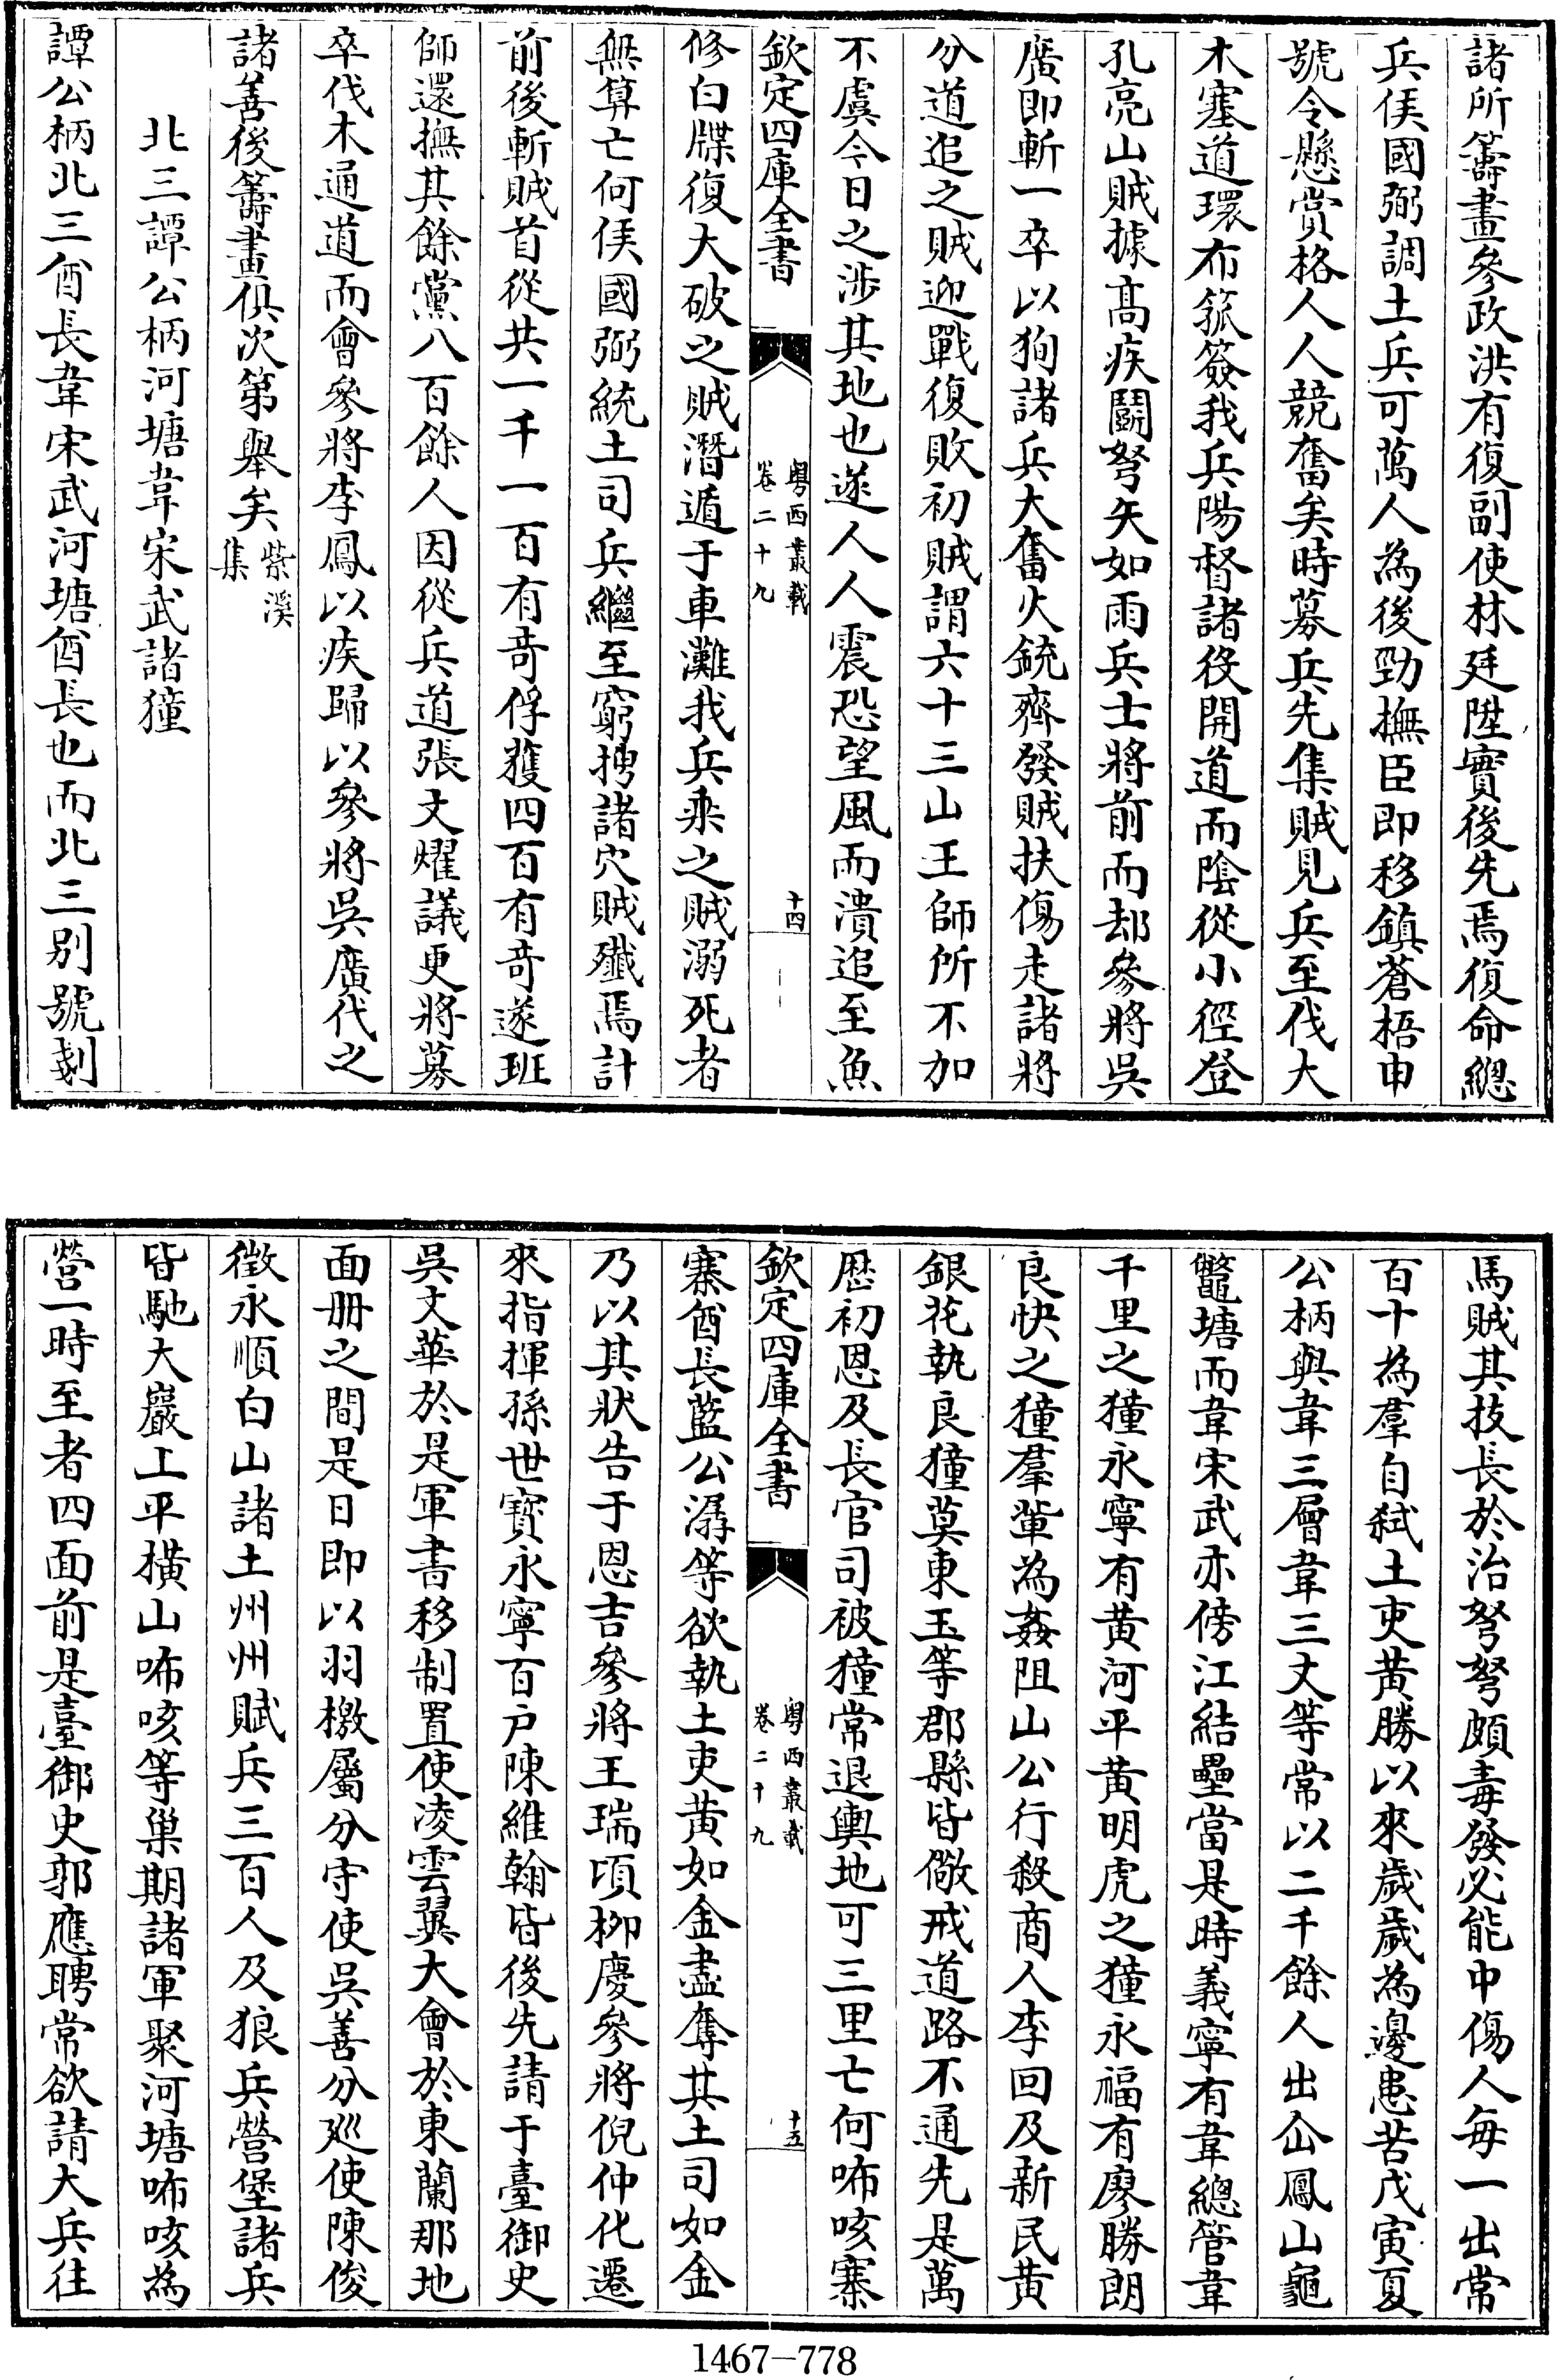 諸所籌畫參政洪有復副使林廷陞實後先焉復命總
兵侯國弼調土兵可萬人為後勁撫臣即移鎮蒼梧申
號令懸賞格人人競奮矣時募兵先集賊見兵至伐大
木塞道環布箛簽我兵陽督諸役開道而陰從小徑登
孔亮山賊據髙疾鬭弩矢如雨兵士將前而却參將吳
廣即斬一卒以狥諸兵大奮火銃齊發賊扶傷走諸將
分道追之賊迎戰復敗初賊謂六十三山王師所不加
不虞今日之涉其地也遂人人震恐望風而潰追至魚
欽定四庫全書
粵西叢載
卷二十九
十四
修白牒復大破之賊潛遁于車灘我兵乘之賊溺死者
無算亡何侯國弼統土司兵繼至窮搜諸穴賊殲焉計
前後斬賊首從共一千一百有竒俘獲四百有竒遂班
師還撫其餘黨八百餘人因從兵道張文燿議更將募
卒伐木通道而會參將李鳳以疾歸以參將吳廣代之
諸善後籌畫俱次第舉矣紫溪集
北三譚公柄河塘韋宋武諸獞
譚公柄北三酋長韋宋武河塘酋長也而北三别號剗
馬賊其技長於治弩弩頗毒發必能中傷人毎一出常
百十為羣自弑土吏黃勝以來歲歲為邊患苦戊寅夏
公柄與韋三層韋三丈等常以二千餘人出仚鳳山龜
鼈塘而韋宋武亦傍江結壘當是時義寧有韋總管韋
千里之獞永寧有黄河平黄明虎之獞永福有廖勝朗
良快之獞羣輩為姦阻山公行殺商人李回及新民黄
銀花執良獞莫東玉等郡縣皆儆戒道路不通先是萬
厯初恩及長官司被獞常退輿地可三里亡何咘咳寨
欽定四庫全書
粵西叢載
卷二十九
十五
寨酋長藍公潺等欲執土吏黄如金盡奪其土司如金
乃以其狀告于恩吉參將王瑞頃柳慶參將倪仲化遷
來指揮孫世寳永寧百户陳維翰皆後先請于臺御史
吳文華於是軍書移制置使凌雲翼大會於東蘭那地
面册之間是日即以羽檄屬分守使吳善分廵使陳俊
徵永順白山諸土州州賦兵三百人及狼兵營堡諸兵
皆馳大巖上平横山咘咳等巢期諸軍聚河塘咘咳為
營一時至者四面前是臺御史郭應聘常欲請大兵往
1467-778